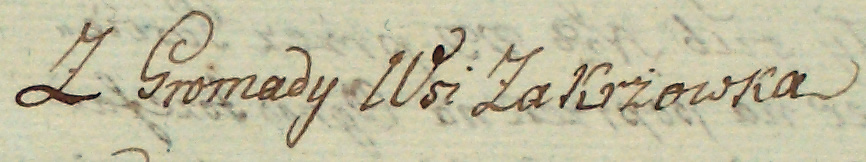 Z Gromady Wsi Zakrżowka